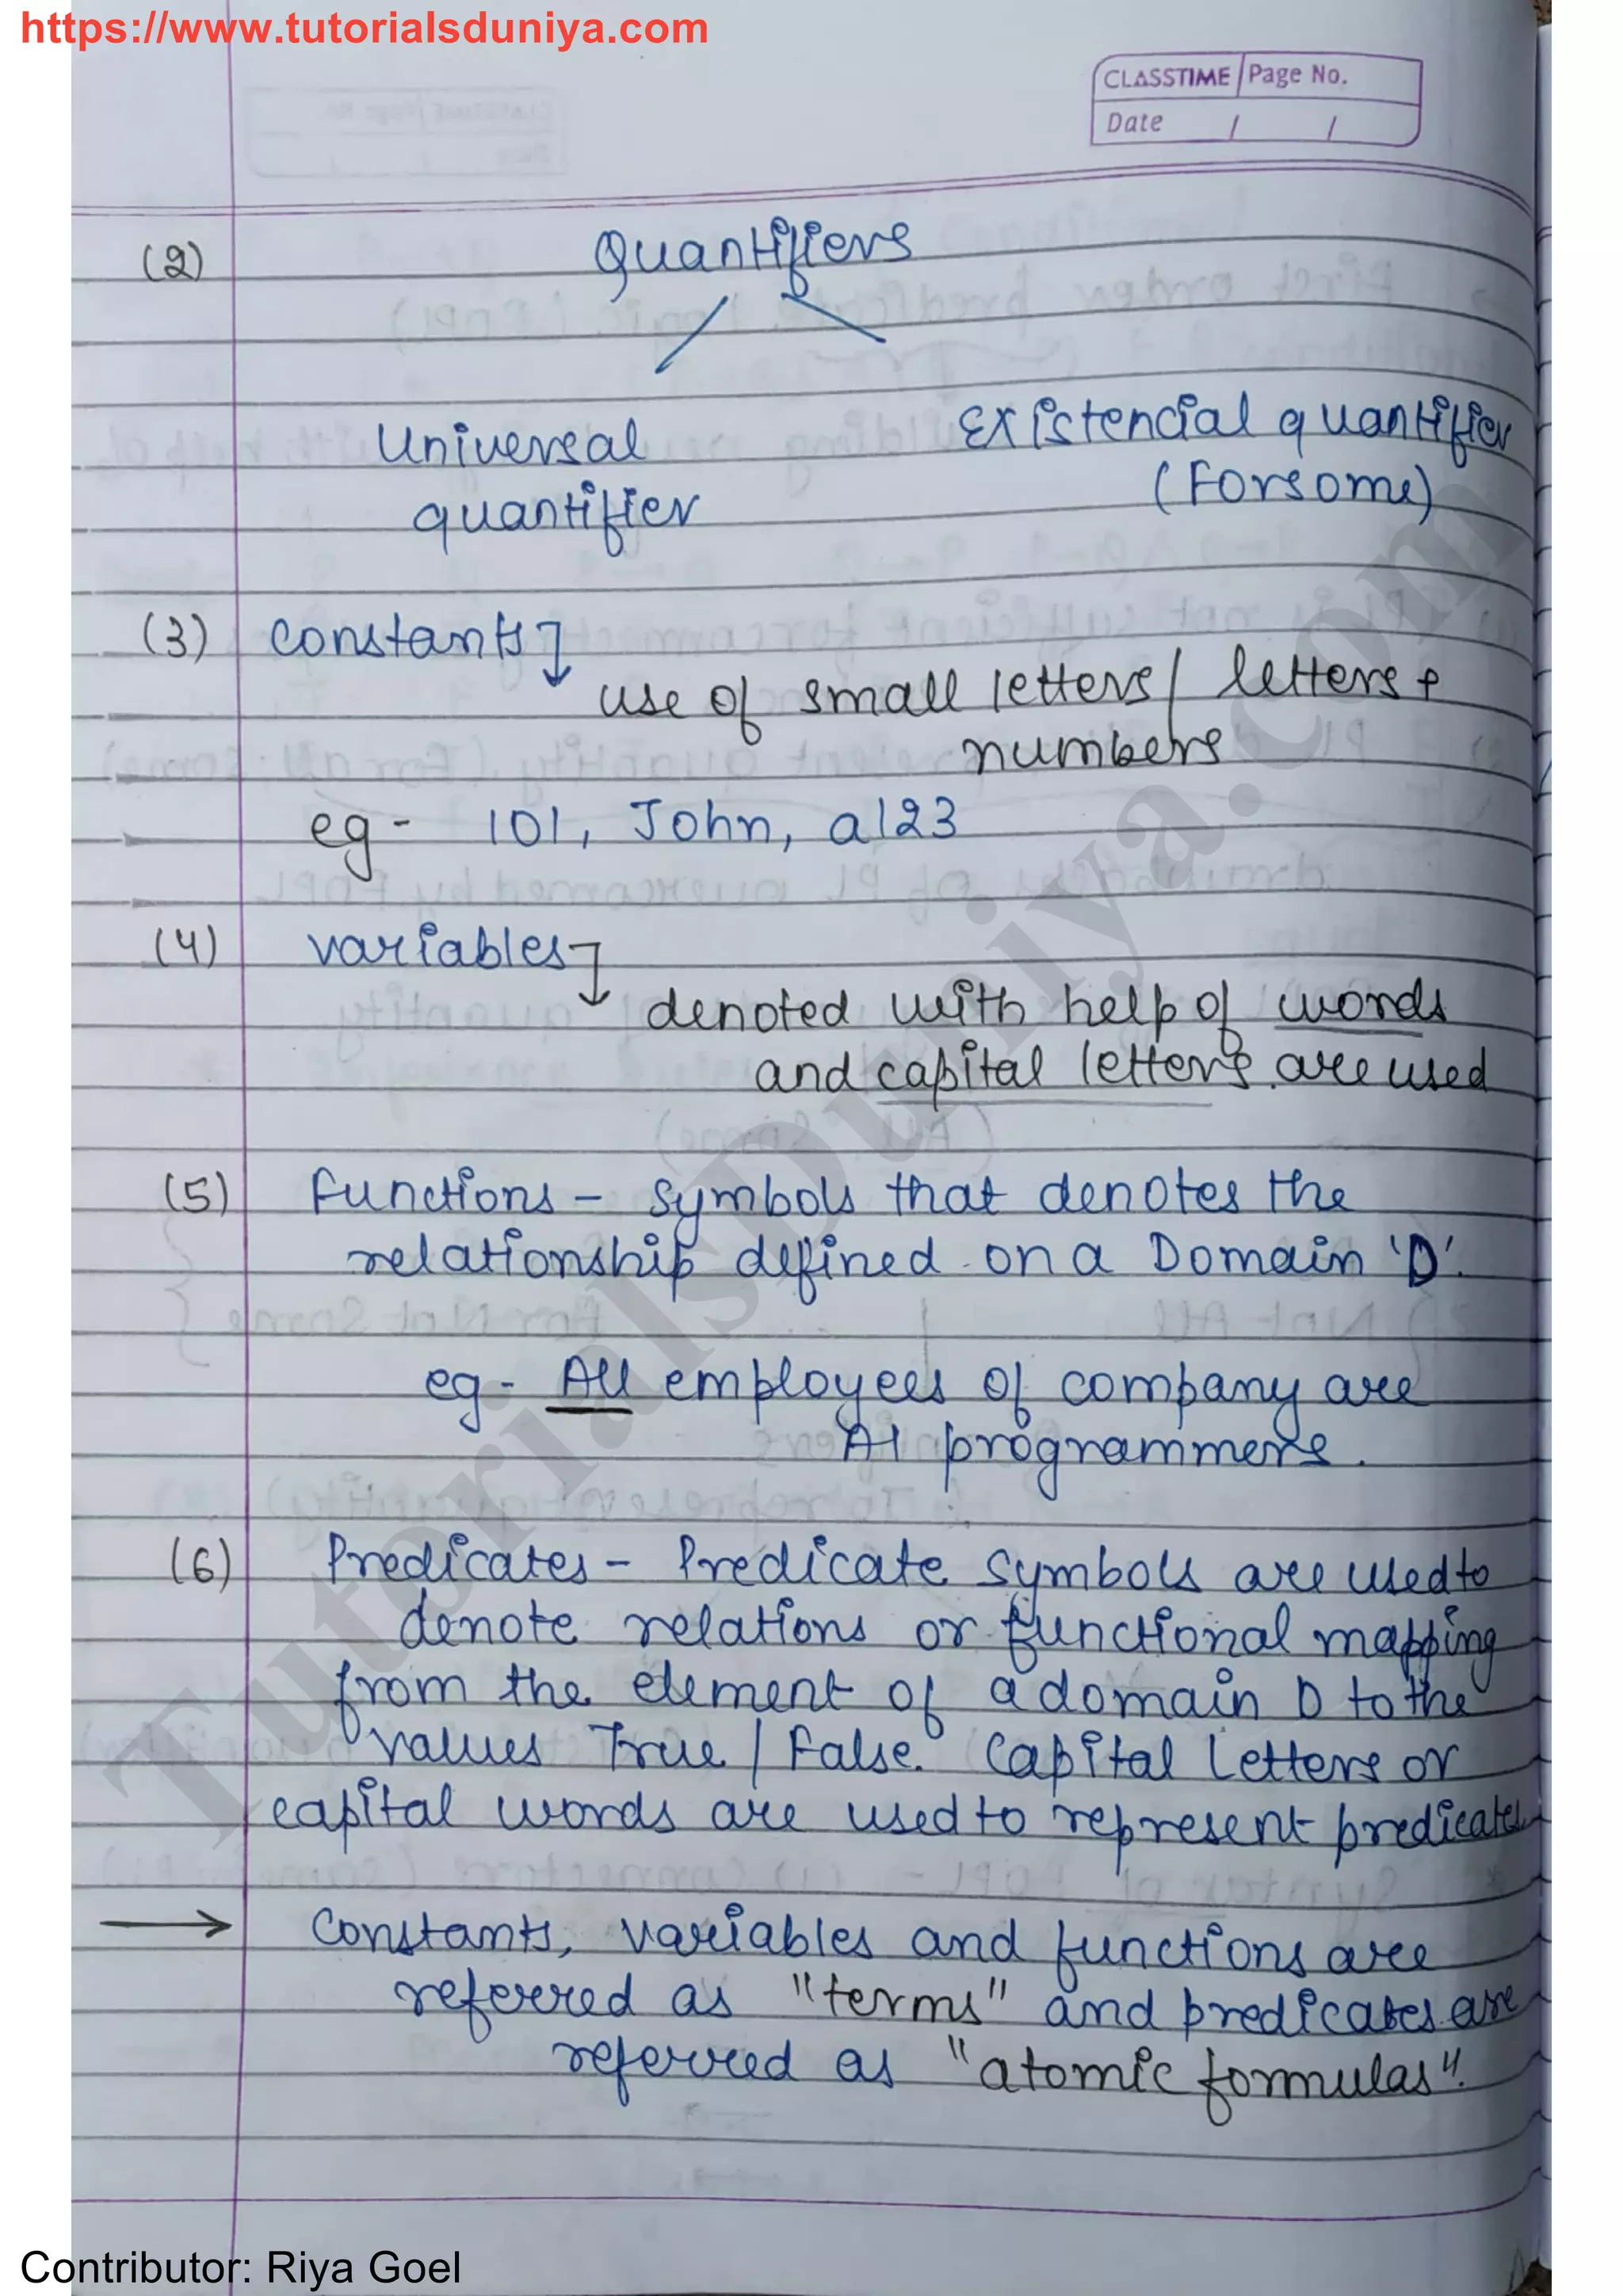 https://www.tutorialsduniya.com
CLASSTIME Page No.
Date / /
(2) Quantifiers
Universal quantifier
Existencial quantifier
(Forsome)
(3) constants
use of small letters / letters +
numbers
eg- 101, John, a123
(4) variables
denoted with help of words
and capital letters are used
(5) Functions - symbols that denotes the
relationship defined on a Domain 'D'.
eg- All employees of company are
AI programmers.
(6) Predicates - Predicate symbols are used to
denote relations or functional mapping
from the element of a domain D to the
values True / False. Capital Letters or
capital words are used to represent predicates.
→ Constants, variables and functions are
referred as "terms" and predicates are
referred as "atomic formulas".
TutorialsDuniya.com
Contributor: Riya Goel